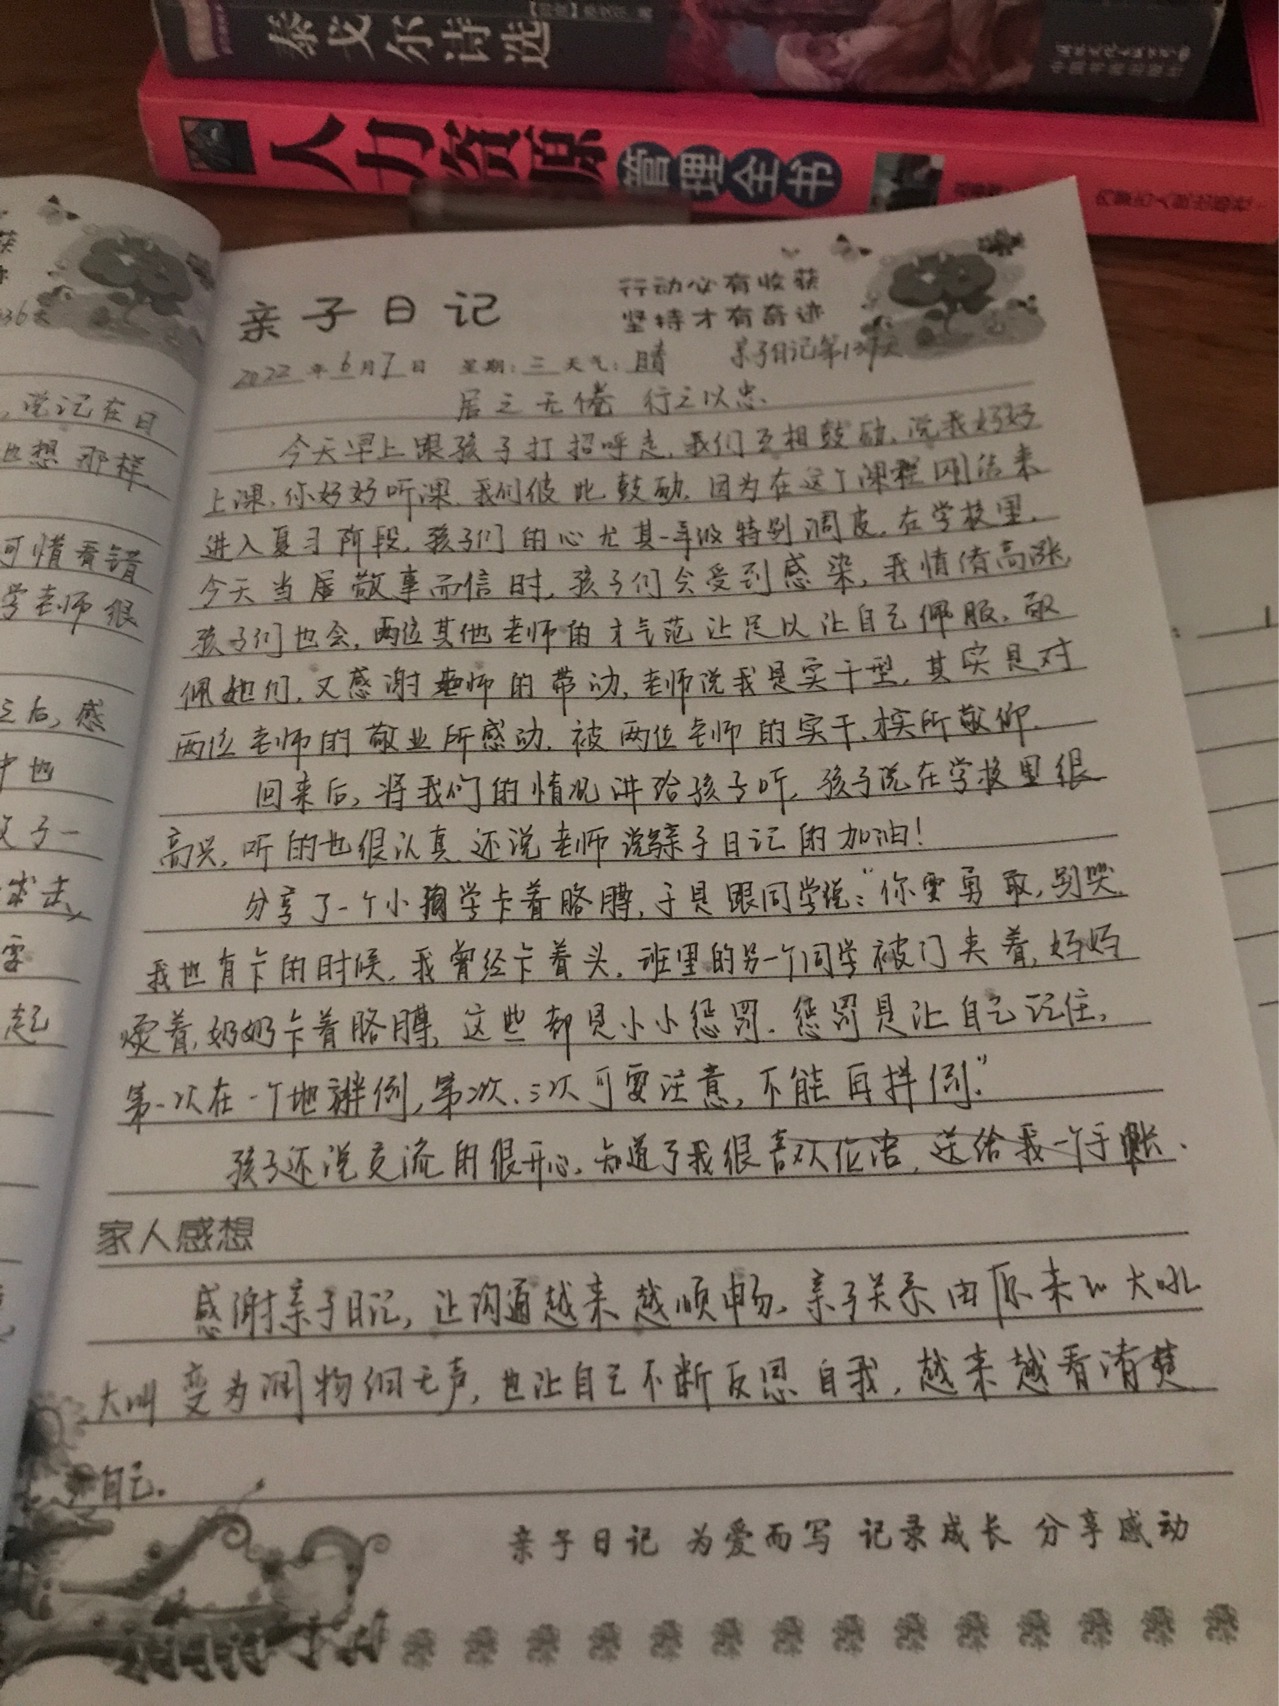 泰戈尔诗选
人力资源管理全书
内蒙古人民出版社
亲子日记
行动必有收获
坚持才有奇迹
2022年6月7日 星期:三 天气:晴 亲子日记第137天
居之无倦 行之以忠
今天早上跟孩子打招呼走,我们互相鼓励,说我好好
上课,你好好听课,我们彼此鼓励,因为在这个课程刚结束
进入复习阶段,孩子们的心尤其一年级特别调皮,在学校里,
今天当居敬事而信时,孩子们会受到感染,我情绪高涨,
孩子们也会,两位其他老师的才气范让足以让自己佩服,敬
佩她们,又感谢老师的带动,老师说我是实干型,其实是对
两位老师的敬业所感动,被两位老师的实干、朴实所敬仰.
回来后,将我们的情况讲给孩子听,孩子说在学校里很
高兴,听的也很认真,还说老师说亲子日记的加油!
分享了一个小同学卡着胳膊,于是跟同学说:“你要勇敢,别哭,
我也有卡的时候,我曾经卡着头,班里的另一个同学被门夹着,妈妈
烫着,奶奶卡着胳膊,这些都是小小惩罚.惩罚是让自己记住,
第一次在一个地摔倒,第二次、三次可要注意,不能再摔倒.”
孩子还说交流的很开心,知道了我很喜欢,送给我一个手账.
家人感想
感谢亲子日记,让沟通越来越顺畅,亲子关系由原来的大吼
大叫变为润物细无声,也让自己不断反思自我,越来越看清楚
自己.
亲子日记 为爱而写 记录成长 分享感动
136天
,说记在日
也想 那样
可惜看错
学老师很
之后,感
中也
孩子一
要
起